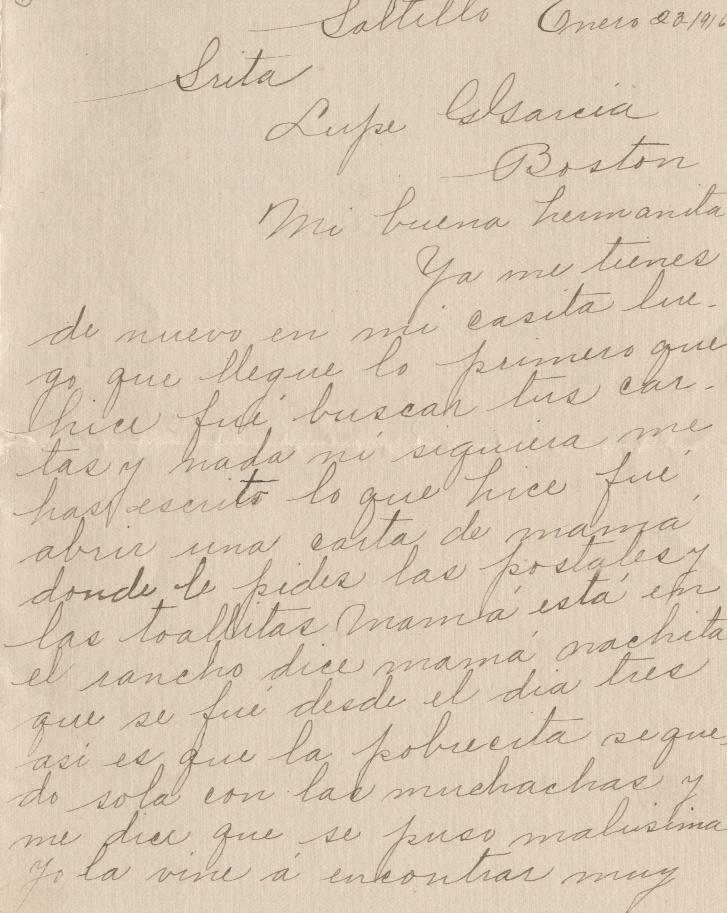 Saltillo Enero 23 1916
Srita
Lupe Garcia
Boston
Mi buena hermanita
Ya me tienes
de nuevo en mi casita lue-
go que llegue lo primero que
hice fué buscar tus car-
tas y nada ni siquiera me
has escrito lo que hice fué
abrir una carta de mamá
donde le pides las postales y
las toallitas Mamá está en
el rancho dice mamá nachita
que se fué desde el dia tres
asi es que la pobrecita se que-
do sola con las muchachas y
me dice que se puso malisima
Yo la vine á encontrar muy